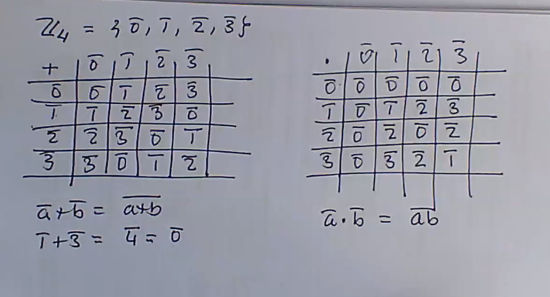 ℤ₄ = { 0̅, 1̅, 2̅, 3̅ }
+ 0̅ 1̅ 2̅ 3̅
0̅ 0̅ 1̅ 2̅ 3̅
1̅ 1̅ 2̅ 3̅ 0̅
2̅ 2̅ 3̅ 0̅ 1̅
3̅ 3̅ 0̅ 1̅ 2̅
a̅ + b̅ = a̅+̅b̅
1̅ + 3̅ = 4̅ = 0̅
· 0̅ 1̅ 2̅ 3̅
0̅ 0̅ 0̅ 0̅ 0̅
1̅ 0̅ 1̅ 2̅ 3̅
2̅ 0̅ 2̅ 0̅ 2̅
3̅ 0̅ 3̅ 2̅ 1̅
a̅ · b̅ = a̅b̅